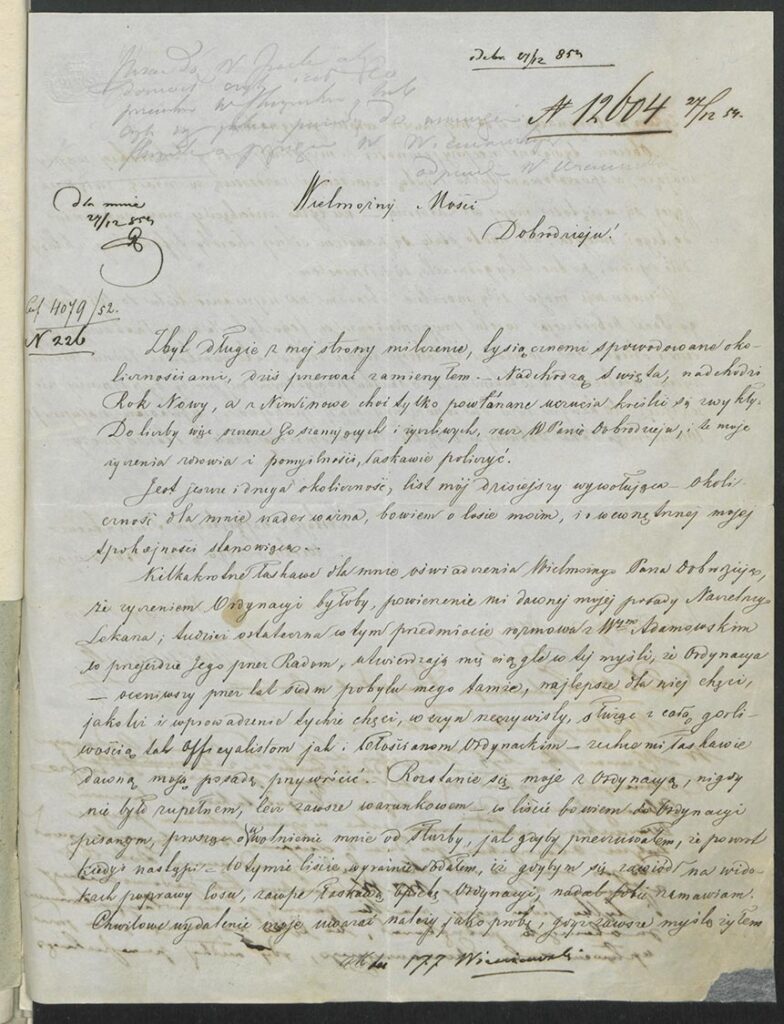 odebr. 27/12 854
N 12604 27/12 54.
Wielmożny Mości
Dobrodzieju!
dla mnie
27/12 854
4079/52.
N 226
Zbyt długie z mej strony milczenie, tysiącznemi spowodowane oko-
licznościami, dziś przerwać zamierzyłem. – Nadchodzą Święta, nadchodzi
Rok Nowy, a z Niemi nowe choć tylko powtarzane uczucia kreślić są zwykły.
Do liczby więc szczerze Go szanujących i życzliwych, racz WPanie Dobrodzieju, i te moje
życzenia zdrowia i pomyślności, łaskawie policzyć.
Jest jeszcze i druga okoliczność, list mój dzisiejszy wywołująca – okoli-
czność dla mnie nader ważna, bowiem o losie moim, i o wewnętrznej mojej
spokojności stanowiąca. –
Kilkakrotne łaskawe dla mnie oświadczenia Wielmożnego Pana Dobrodzieja,
że życzeniem Ordynacyi byłoby, powierzenie mi dawnej mojej posady Naczelnego
Lekarza; tudzież ostateczna w tym przedmiocie rozmowa z Wym Adamowskim
w przejeździe Jego przez Radom, utwierdzają mię ciągle w tej myśli, że Ordynacya
– oceniwszy przez lat siedm pobytu mego tamże, najlepsze dla niej chęci,
jakoteż i wprowadzenie tychże chęci, w czyn rzeczywisty, służąc z całą gorli-
wością tak Officyalistom jak i Włościanom Ordynackim – zechce mi łaskawie
dawną moją posadę przywrócić. – Rozstanie się moje z Ordynacyą, nigdy
nie było zupełnem, lecz zawsze warunkowem – w liście bowiem do Ordynacyi
pisanym, prosząc o uwolnienie mnie od służby, jak gdyby przeczuwałem, że powrót
kiedyś nastąpi – w tymże liście wyraźnie dodałem, iż gdybym się zawiódł na wido-
kach poprawy losu, zawsze łaskawą opiekę Ordynacyi, nadal sobie zamawiam.
Chwilowe wydalenie moje uważać należy jako próbę, gdyż zawsze myślą żyłem
177